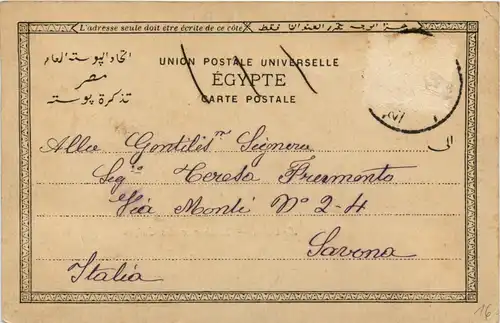 L'adresse seule doit être écrite de ce côté
اتحاد البوستة العام
مصر
تذكرة بوستة
UNION POSTALE UNIVERSELLE
ÉGYPTE
CARTE POSTALE
الى
Alla Gentilis.ma Signora
Sig.ra Teresa Fremonto
Via Monti N° 2-4
Savona
Italia
16